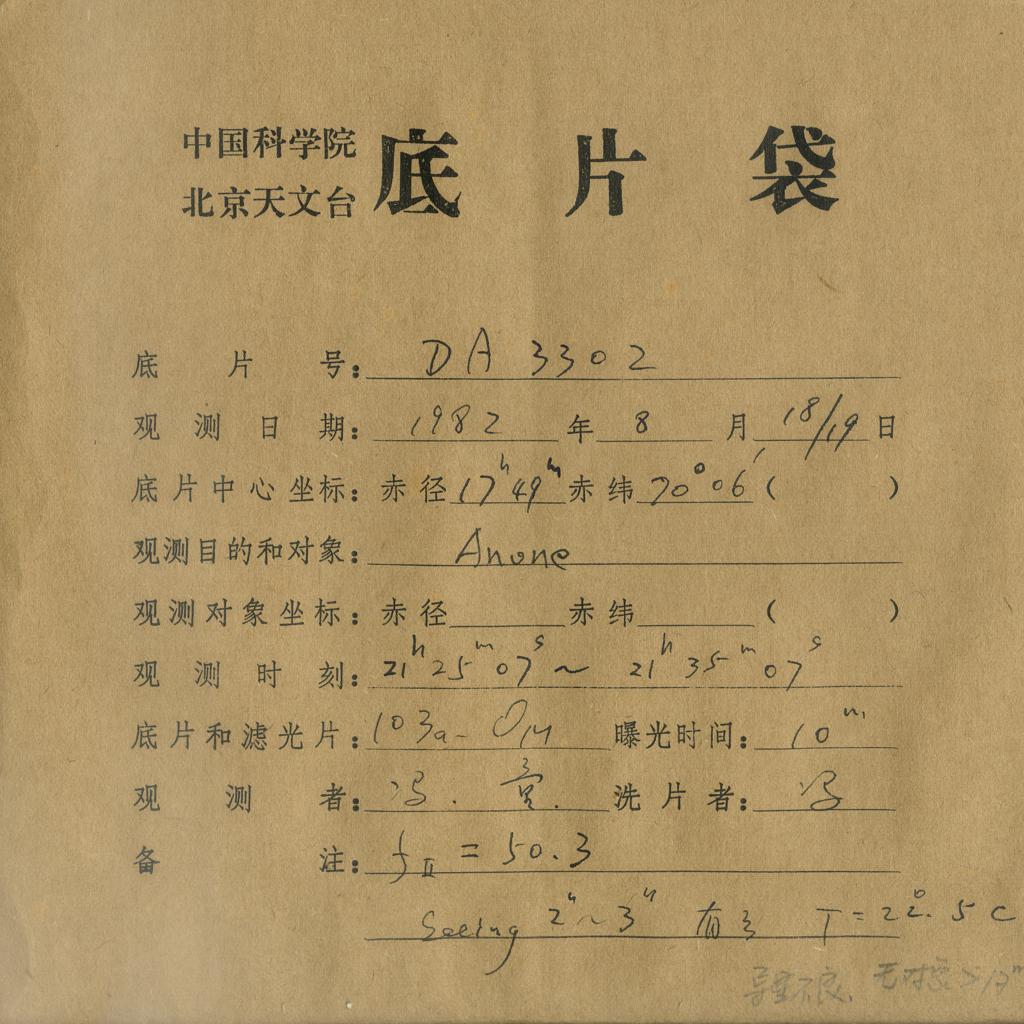 中国科学院
北京天文台 底片袋
底片号: DA 3302
观测日期: 1982 年 8 月 18/19 日
底片中心坐标: 赤径 17ʰ49ᵐ 赤纬 70°06′ ( )
观测目的和对象: Anone
观测对象坐标: 赤径 赤纬 ( )
观测时刻: 21ʰ25ᵐ07ˢ ~ 21ʰ35ᵐ07ˢ
底片和滤光片: 103a-O 曝光时间: 10ᵐ
观测者: 冯. 洗片者: 冯
备注: f_II = 50.3
Seeing 2"~3" 有 T=22°.5 C
导星不良.